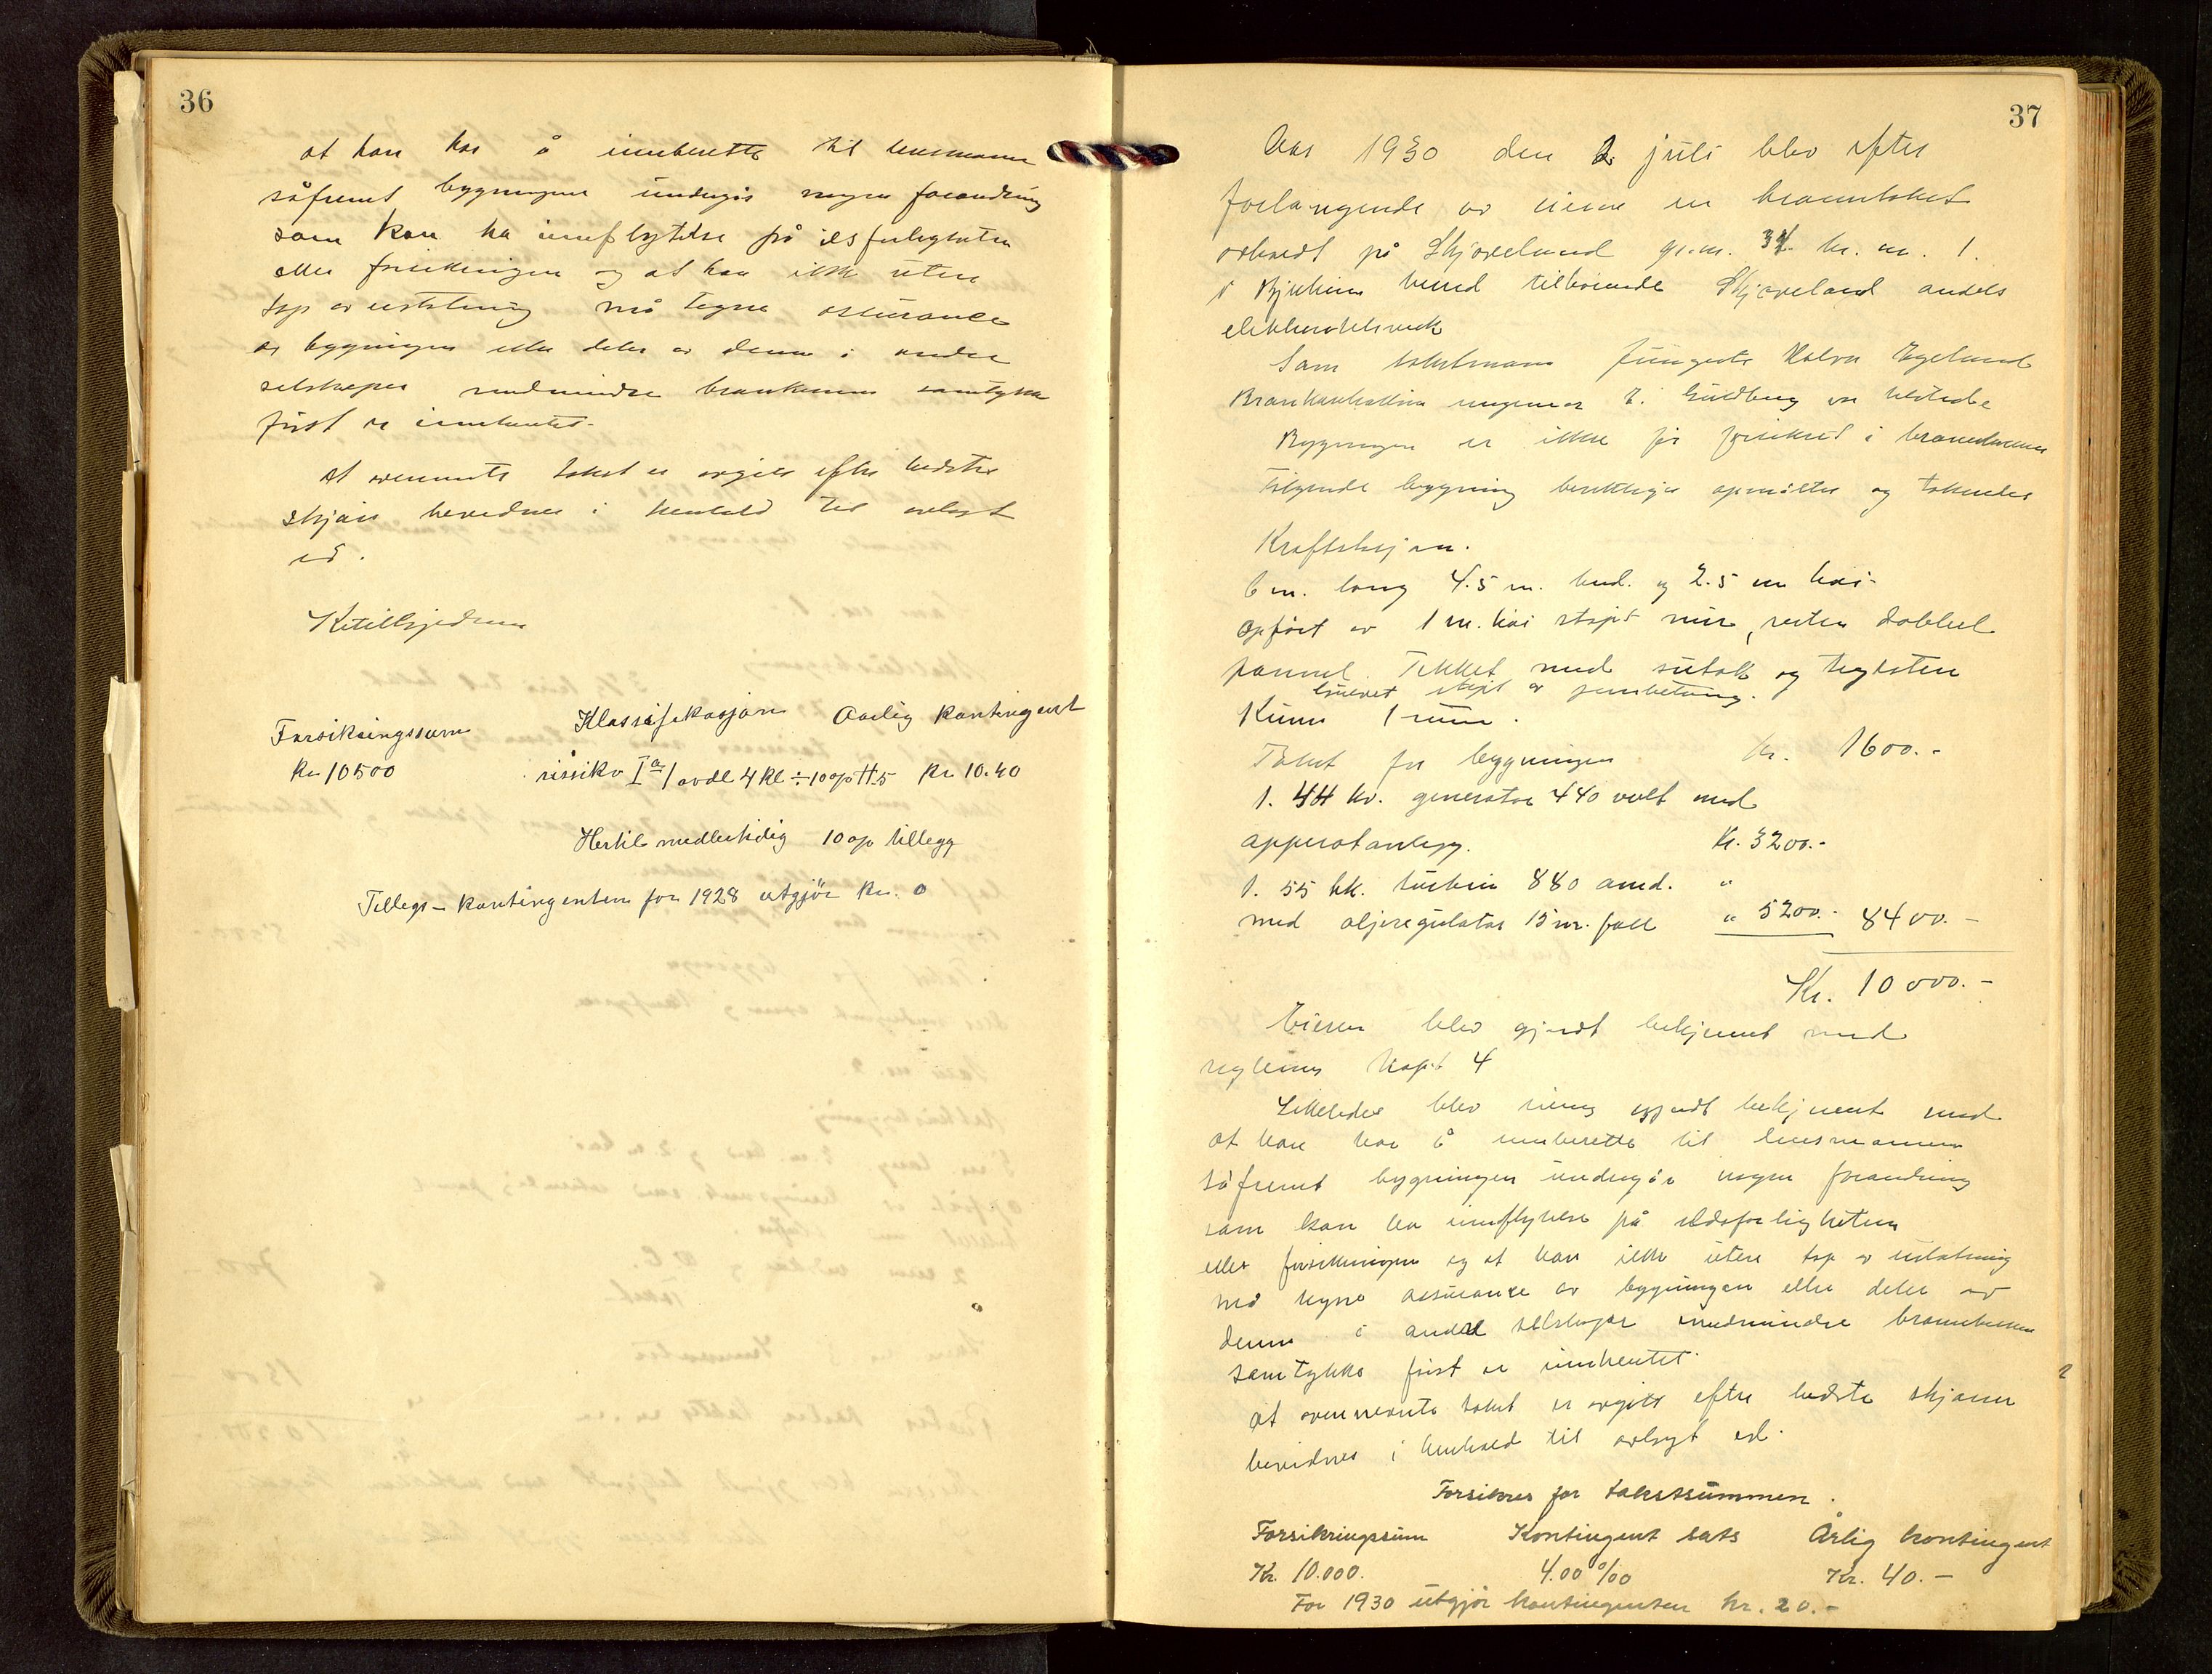 36
at han har å innberette til lensmann
såfremt bygningen undergis nogen forandring
som kan ha innflytelse på ilsfarligheten
eller forsikringen og at han ikke uten
tap av erstatning må tegne assurance
av bygningen eller deler av denne i andre
selskaper medmindre brankassens samtykke
først er innhentet.
At ovennevnte takst er avgitt efter bedste
skjøn bevidnes i henhold til avlagt
ed.
Forsikringssum Klassifikasjon Aarlig kontingent
Kr 10500 rissiko Iª 1 avdl 4 kl ÷ 10% Kr 10.40
Hertil midlertidig 10% tillegg
Tillegs-kontingenten for 1928 utgjør kr. 0
37
Aar 1930 den 2. juli blev efter
forlangende av eieren en branntakst
avholdt på Skjæveland gr.nr. br. nr. 1.
i Bjerkreim herred tilhørende Skjæveland andels
elektrisitetsverk
Som takstmann fungerte Halvor Egeland
Brankontrollør ingeniør T. Guldberg var tilstede
Bygningen er ikke før forsikret i brannkassen
Følgende bygning besiktiges opmåltes og takseres
Kraftstasjon.
6 m. lang 4.5 m. bred. og 2.5 m høi.
Opført av 1 m. høi støpt mur, resten dobbel
pannel. Tekket med sutak og teglsten
Gulvet støpt av jernbetong.
Kuns 1 rum.
Takst for bygningen Kr. 1600.-
1. 44 kv. generator 440 volt med
apparatanlegg. Kr. 3200.-
1. 55 hk. turbin 880 omd. "
med oljeregulator 15 m. fall " 5200.- 8400.-
Kr. 10 000.-
Eieren blev gjordt bekjennt med
reglenes Kapt 4
Likeledes blev eieren gjordt bekjennt med
at han har å innberette til lensmannen
såfremt bygningen undergår nogen forandring
som kan ha innflytelse på ildsfarligheten
eller forsikringen og at han ikke uten tap av erstatning
må tegne assurance av bygningen eller deler av
denne i andre selskaper medmindre brannkassens
samtykke først er innhentet.
At ovennevnte takst er avgitt efter bedste skjønn
bevidnes i henhold til avlagt ed.
Forsikres for takstsummen.
Forsikringssum Kontingent sats Årlig kontingent
Kr. 10.000. 4.00 ‰ Kr. 40.-
For 1930 utgjør kontingenten kr. 20.-